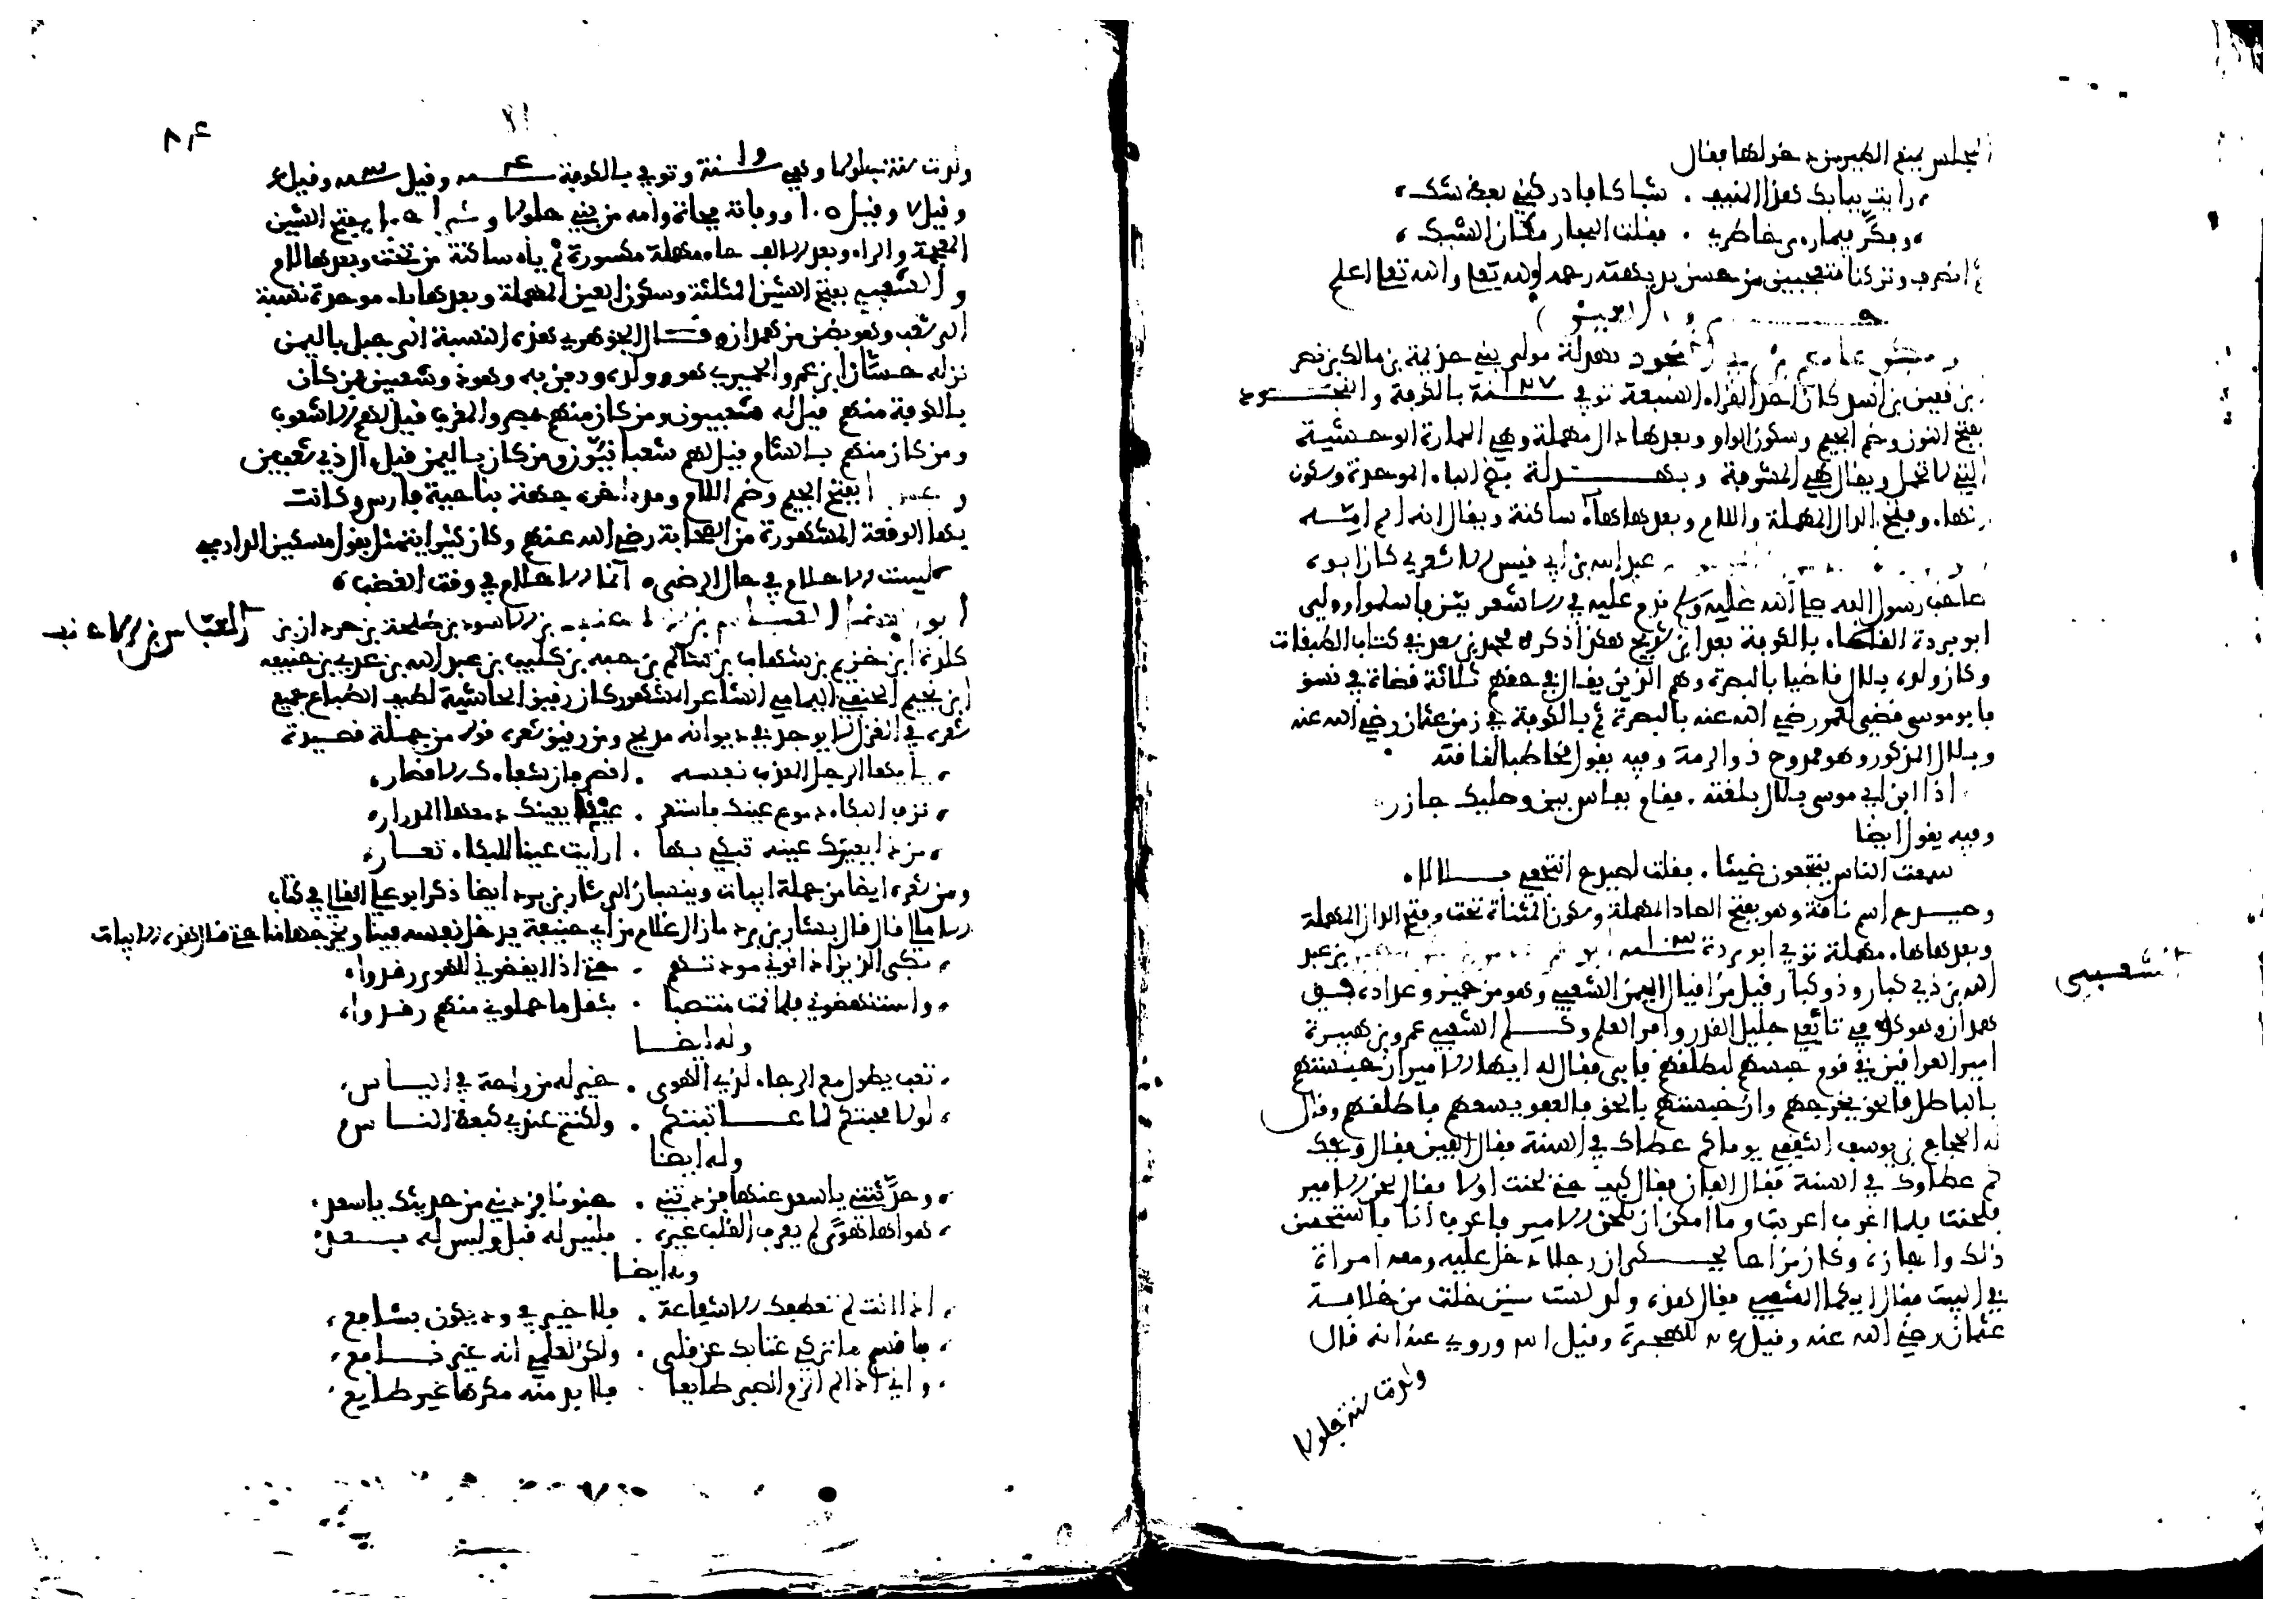 المجلس يمنع الطير من دخولها فقال
رايت ببابك هذا المنيف . شباكا فادركني بعض شك
وفكر فيما رءى خاطري . فقلت البحار مكان الشبك
ثم انصرف وتركنا متعجبين من حسن بديهته رحمه الله تعا والله تعا اعلم
عاصم بن بهدلة مولى بني جزيمة بن مالك بن نصر
بن قعين بن اسد كان احد القراء السبعة توفي ١٢٧ سنة بالكوفة والنجود
بفتح النون وضم الجيم وسكون الواو وبعدها دال مهملة وهي الحمارة الوحشية
التي لا تحمل ويقال هي المشرفة وبهدلة بفتح الباء الموحدة وسكون
الهاء وفتح الدال المهملة واللام وبعدها هاء ساكنة ويقال انه اسم امه
عبد الله بن ابي قيس الاشعري كان ابوه
صاحب رسول الله صلى الله عليه وسلم قدم عليه في الاشعريين فاسلموا وولي
ابو بردة القضاء بالكوفة بعد ابن شريح هكذا ذكره محمد بن سعد في كتاب الطبقات
وكان ولده بلال قاضيا بالبصرة وهم الذين يقال في حقهم ثلاثة قضاة في نسق
فابو موسى قضى لعمر رضي الله عنه بالبصرة ثم بالكوفة في زمن عثمان رضي الله عنه
وبلال المذكور وهو ممدوح ذو الرمة وفيه يقول مخاطبا لناقته
اذا ابن ابي موسى بلال بلغته . فقام بفاس بين وصليك جازر
وفيه يقول ايضا
سمعت الناس ينتجعون غيثا . فقلت لصيدح انتجعي بلالا
وصيدح اسم ناقة وهو بفتح الصاد المهملة وسكون المثناة تحت وفتح الدال المهملة
وبعدها حاء مهملة توفي ابو بردة سنة ١٠٣ ابو بن عبد
الشعبي
الله بن ذي كبار وذو كبار قيل من اقيال اليمن الشعبي وهو من حمير وعداده في
همدان وهو كوفي تابعي جليل القدر وافر العلم وكلم الشعبي عمرو بن هبيرة
امير العراقين في قوم حبسهم ليطلقهم فابى فقال له ايها الامير ان حبستهم
بالباطل فالحق يخرجهم وان حبستهم بالحق فالعفو يسعهم فاطلقهم وقال
له الحجاج بن يوسف الثقفي يوما كم عطاك في السنة فقال الفين فقال ويحك
كم عطاوك في السنة فقال الفان فقال كيف حتى لحنت اولا فقال لحن الامير
فلحنت فلما اعرب اعربت وما امكن ان يلحن الامير فاعرب انا فاستحسن
ذلك واجازه وكان مزاحا يحكى ان رجلا دخل عليه ومعه امراة
في البيت فقال ايكما الشعبي فقال هذه ولد لست سنين خلت من خلافة
عثمان رضي الله عنه وقيل للهجرة وقيل وروي عنه انه قال
ولدت سنة جلولا
ولدت سنة جلولا وهي ١٩ سنة وتوفي بالكوفة وقيل وقيل
وقيل ٧ وقيل ١٠٥ ووفاته فجاة وامه من سبي جلولا بفتح الشين
المعجمة والراء وبعد الالف حاء مهملة مكسورة ثم ياء ساكنة من تحت وبعدها لام
والشعبي بفتح الشين المثلثة وسكون العين المهملة وبعدها باء موحدة نسبة
الى شعب وهو بطن من همدان وقال الجوهري هذه النسبة الى جبل باليمن
نزله حسان ابن عمرو الحميري هو وولده ودفن به وهو ذو شعبين فمن كان
بالكوفة منهم قيل له شعبيون ومن كان منهم بمصر والمغرب قيل لهم الاشعوب
ومن كان منهم بالشام قيل لهم شعبانيون ومن كان باليمن قيل ال ذي شعبين
بفتح الجيم وضم اللام ومد اخره جهة بناحية فارس وكانت
بها الوقعة المشهورة من الصحابة رضي الله عنهم وكان كثيرا يتمثل بقول مسكين الدارمي
ليست الاحلام في حال الرضى . انما الاحلام في وقت الغضب
ابو الفضل بن الاسود بن طلحة بن حردان بن
العباس بن الاحنف
كلدة ابن خزيم بن شهاب بن سالم بن حبه بن كليب بن عبد الله بن عدي بن حنيفه
ابن لجيم الحنفي اليمامي الشاعر المشهور كان رقيق الحاشية لطيف الطباع جميع
شعره في الغزل لا يوجد في ديوانه مديح ومن رقيق شعره قوله من جملة قصيدة
يا ايها الرجل المعذب نفسه . اقصر فان شفاءك الاقصار
نزف البكاء دموع عينك فاستعر . عينا يعينك دمعها المدرار
من ذا يعيرك عينه تبكي بها . ارايت عينا للبكاء تعار
ومن شعره ايضا من جملة ابيات وينسبان الى بشار بن برد ايضا ذكر ابو علي القالي في كتاب
الامالي قال قال بشار بن برد ما زال غلام من ابي حنيفة يدخل نفسه فينا ويخرجها منا حتى قال هذه الابيات
نبكي الذين اذاقوني مودتهم . حتى اذا ايقظوني للهوى رقدوا
واستنهضوني فلما قمت منتصبا . بثقل ما حملوني منهم رقدوا
وله ايضا
تعب يطول مع الرجاء لذي الهوى . خير له من راحة في الياس
لولا محبتكم لما عاتبتكم . ولكنتم عندي كبعض الناس
وله ايضا
وحدثتني يا سعد عنها فزدتني . جنونا فزدني من حديثك يا سعد
هواها هوى لم يعرف القلب غيره . فليس له قبل وليس له بعد
وله ايضا
اذا انت لم تعطفك الا شفاعة . فلا خير في ود يكون بشافع
فاقسم ما تركي عتابك عن قلى . ولكن لعلمي انه غير نافع
واني اذا لم الزم الصبر طايعا . فلا بد منه مكرها غير طايع